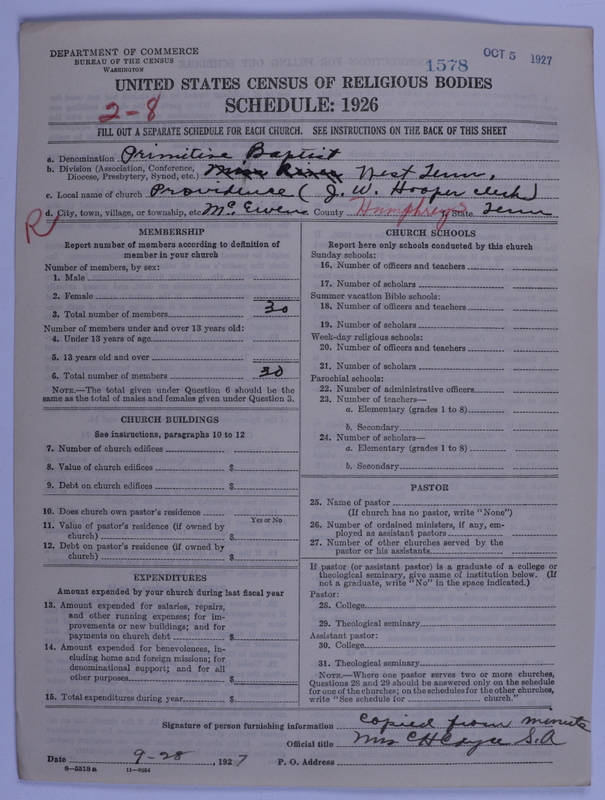 DEPARTMENT OF COMMERCE
BUREAU OF THE CENSUS
WASHINGTON
1578
OCT 5 1927
UNITED STATES CENSUS OF RELIGIOUS BODIES
2-8
SCHEDULE: 1926
FILL OUT A SEPARATE SCHEDULE FOR EACH CHURCH. SEE INSTRUCTIONS ON THE BACK OF THIS SHEET
a. Denomination Primitive Baptist
b. Division (Association, Conference, Diocese, Presbytery, Synod, etc.) West Tenn.
c. Local name of church Providence (J. W. Hooper clerk)
R
d. City, town, village, or township, etc. McEwens County Humphreys State Tenn
MEMBERSHIP
Report number of members according to definition of member in your church
Number of members, by sex:
1. Male
2. Female
3. Total number of members 30
Number of members under and over 13 years old:
4. Under 13 years of age
5. 13 years old and over
6. Total number of members 30
NOTE.—The total given under Question 6 should be the same as the total of males and females given under Question 3.
CHURCH BUILDINGS
See instructions, paragraphs 10 to 12
7. Number of church edifices
8. Value of church edifices $
9. Debt on church edifices $
10. Does church own pastor's residence
Yes or No
11. Value of pastor's residence (if owned by church) $
12. Debt on pastor's residence (if owned by church) $
EXPENDITURES
Amount expended by your church during last fiscal year
13. Amount expended for salaries, repairs, and other running expenses; for improvements or new buildings; and for payments on church debt $
14. Amount expended for benevolences, including home and foreign missions; for denominational support; and for all other purposes $
15. Total expenditures during year $
CHURCH SCHOOLS
Report here only schools conducted by this church
Sunday schools:
16. Number of officers and teachers
17. Number of scholars
Summer vacation Bible schools:
18. Number of officers and teachers
19. Number of scholars
Week-day religious schools:
20. Number of officers and teachers
21. Number of scholars
Parochial schools:
22. Number of administrative officers
23. Number of teachers—
a. Elementary (grades 1 to 8)
b. Secondary
24. Number of scholars—
a. Elementary (grades 1 to 8)
b. Secondary
PASTOR
25. Name of pastor
(If church has no pastor, write "None")
26. Number of ordained ministers, if any, employed as assistant pastors
27. Number of other churches served by the pastor or his assistants
If pastor (or assistant pastor) is a graduate of a college or theological seminary, give name of institution below. (If not a graduate, write "No" in the space indicated.)
Pastor:
28. College
29. Theological seminary
Assistant pastor:
30. College
31. Theological seminary
NOTE.—Where one pastor serves two or more churches, Questions 28 and 29 should be answered only on the schedule for one of the churches; on the schedules for the other churches, write "See schedule for church."
Signature of person furnishing information Copied from minute
Official title Mrs C H Cayce S.A
Date 9-28, 1927 P. O. Address
8-5318a 11-9054